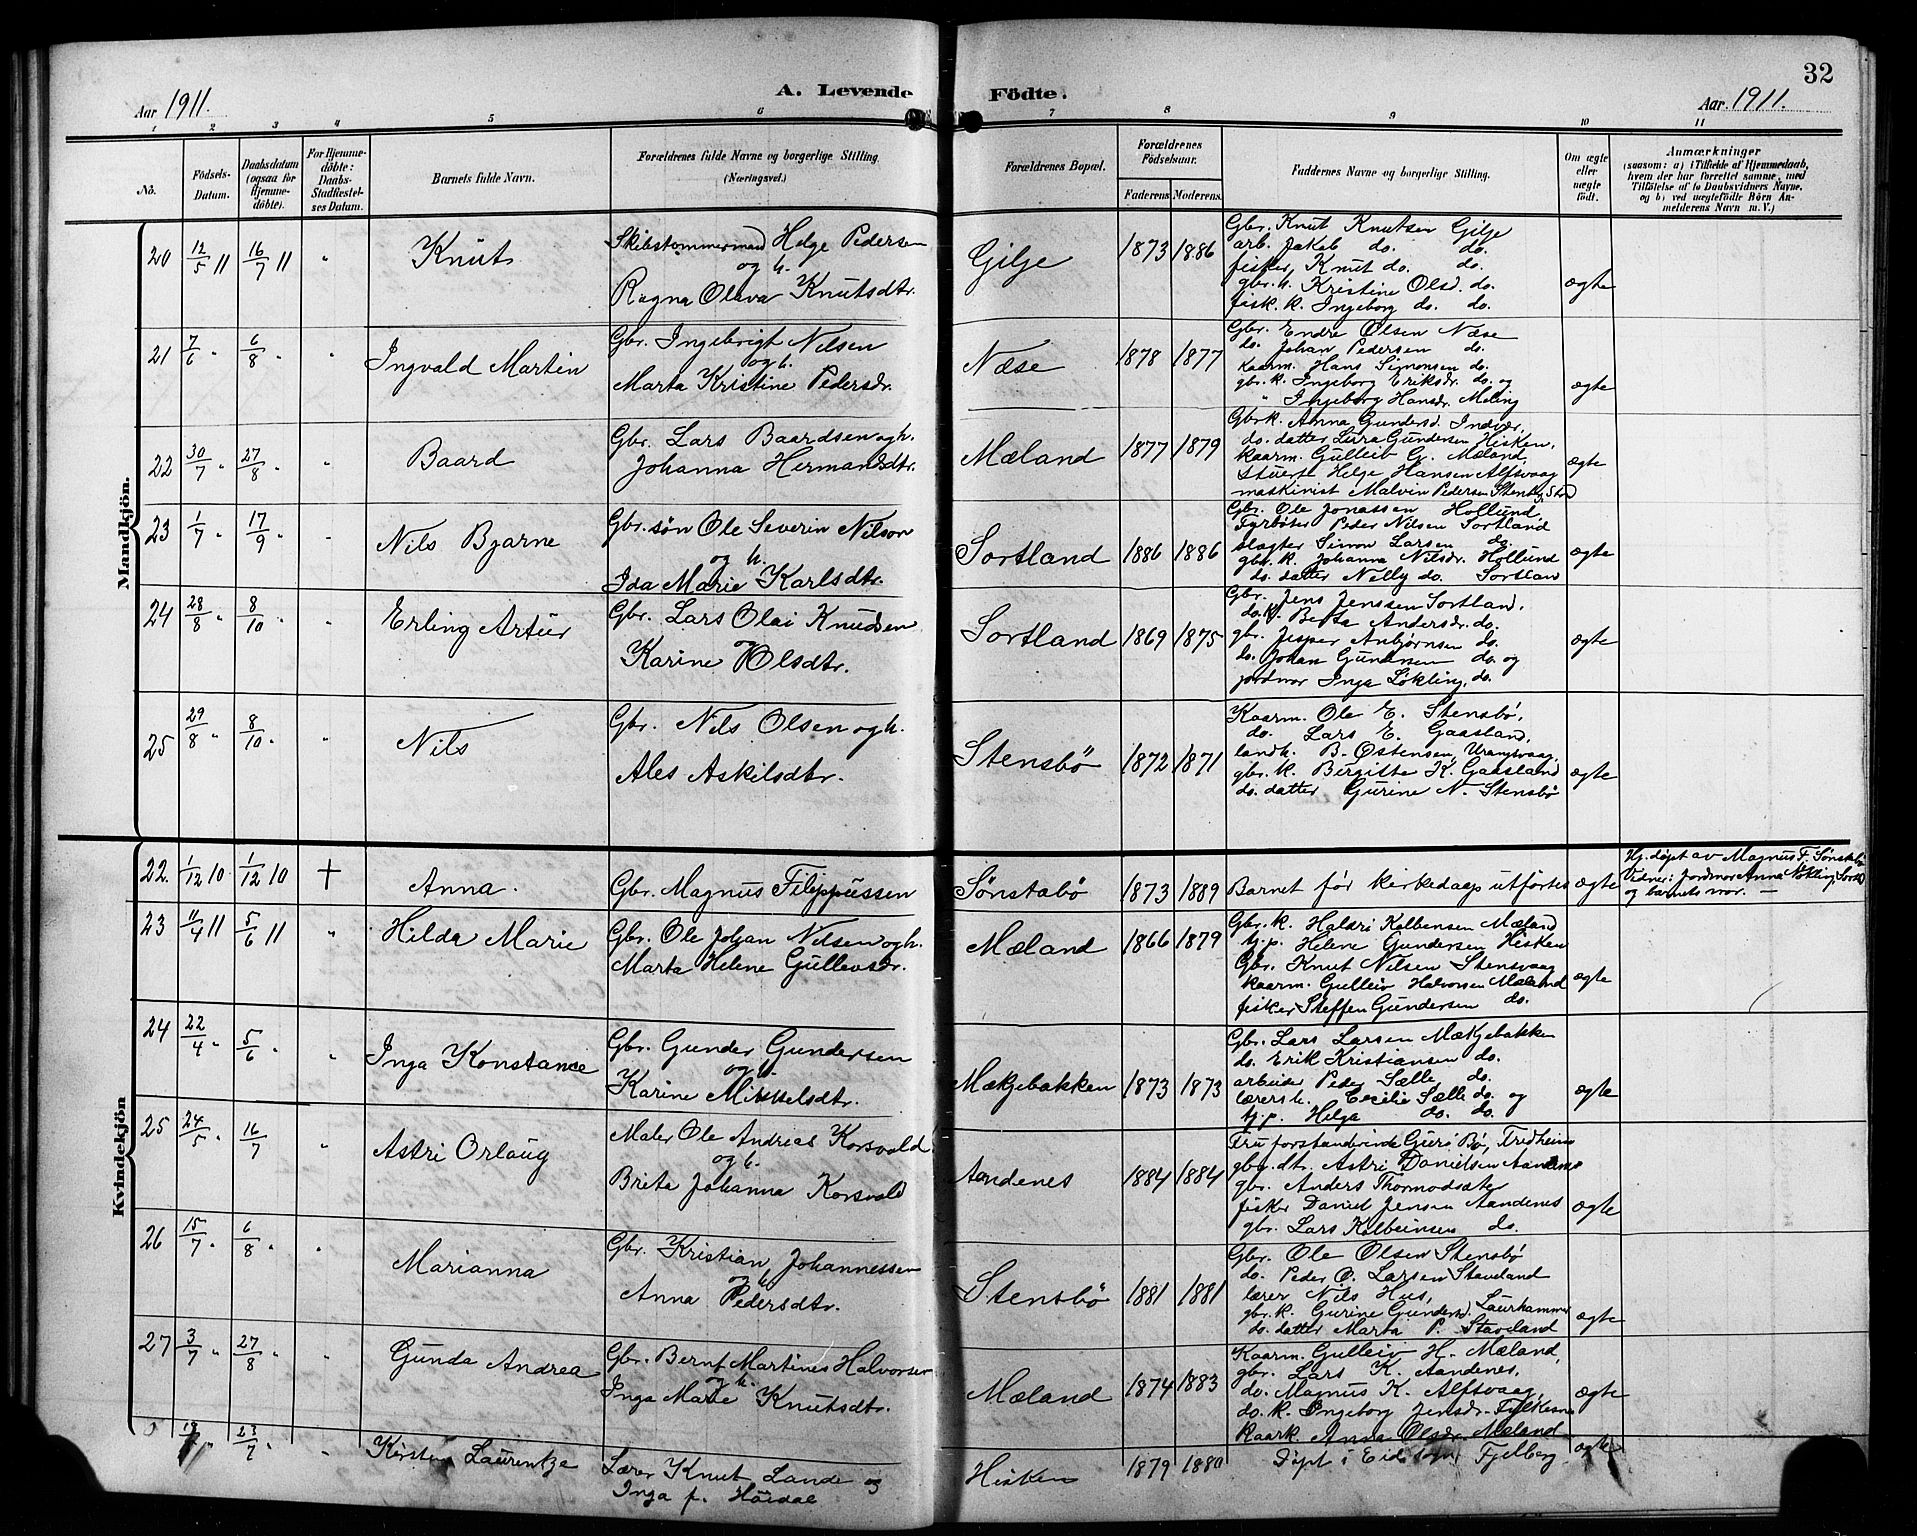 32
Aar 1911. A. Levende Födte. Aar. 1911.
1 2 3 4 5 6 7 8 9 10 11
No. Födsels-Datum. Daabsdatum (ogsaa for Hjemme-döbte). For Hjemme-döbte: Daabs-Stadfæstel-ses Datum. Barnets fulde Navn. Forældrenes fulde Navne og borgerlige Stilling. (Næringsvei.) Forældrenes Bopæl. Forældrenes Födselsaar. Faderens Moderens Faddernes Navne og borgerlige Stilling. Om ægte eller uægte födt. Anmærkninger
(saasom: a) i Tilfælde af Hjemmedaab, hvem der har forrettet samme, med Tilföielse af to Daabsvidners Navne, og b) ved uægtefödte Börn Anmelderens Navn m. V.)
Mandkjön.
20 12/5 11 16/7 11 " Knut Skibstømmermand Helge Pedersen
og h.
Ragna Oleva Knutsdtr. Gilje 1873 1886 Gbr. Knut Knutsen Gilje
arb. Jakob do. do.
fisker Knut do. do.
gbr. k. Kristine Olsd. do.
fisk. k. Ingeborg do. do. ægte
21 7/6 " 6/8 " " Ingvald Martin Gbr. Ingebrigt Nilsen
og h.
Marta Kristine Pedersdr. Næse 1878 1877 Gbr. Endre Olsen Næse
do. Johan Pedersen do.
kaarm. Hans Simonsen do.
gbr. k. Ingeborg Eriksdr. do. og
" Ingeborg Hansdr. Meling ægte
22 30/7 " 27/8 " " Baard Gbr. Lars Baardsen og h.
Johanna Hermansdtr. Mæland 1877 1879 Gbrk. Anna Gundersd. Indvær,
do. datter Lina Gundersen Hisken,
kaarm. Gulleiv G. Mæland
stuert Helge Hansen Alfsvaag
maskinist Malvin Pedersen ægte
23 1/7 " 17/9 " " Nils Bjarne Gbr. søn Ole Severin Nilson
og h.
Ida Marie Karlsdtr. Sortland 1886 1886 Gbr. Ole Jonassen Hollund,
Fyrbøter Peder Nilsen Sortland
slagter Simon Larsen do.
gbr. k. Johanna Nilsdr. Hollund
do. datter Nelly do. Sortland ægte
24 28/8 " 8/10 " " Erling Artur Gbr. Lars Olai Knudsen
og
Karine Olsdtr. Sortland 1869 1875 Gbr. Jens Jenssen Sortland,
do. k. Berta Andersdr. do.
gbr. Jesper Anbjørnsen do.
do. Johan Gundersen do. og
jordmor Inga Løkling, do. ægte
25 29/8 " 8/10 " " Nils Gbr. Nils Olsen og h.
Ales Askilsdtr. Stensbö 1872 1871 Kaarm. Ole E. Stensbö,
do. Lars E. Gaasland,
landh. B. Østensen, Urangsvaag,
gbr. k. Birgitte K. Gaasland
do. datter Gurine N. Stensbö ægte
Kvindekjön
22. 1/12 10 1/12 10 + Anna. Gbr. Magnus Filippussen Sønstabö 1873 1889 Barnet før kirkedaap utførtes ægte Hj. døpt av Magnus F. Sønstabö
Vidner: Jordmor Anna
og barnets mor. —
23 11/4 11 5/6 11 " Hilda Marie Gbr. Ole Johan Nilsen og h.
Marta Helene Gullevsdr. Mæland 1866 1879 Gbr. k. Haldri Kolbensen Mæland
tj. p. Helene Gundersen Hisken
Gbr. Knut Nilsen Stensvaag
kaarm. Gulleiv Halvorsen Mæland
fisker Steffen Gundersen do. ægte
24 22/4 " 5/6 " " Inga Konstance Gbr. Gunder Gundersen
og h.
Karine Mikkelsdtr. Mækjebakken 1873 1873 Gbr. Lars Larsen Mækjebakken
do. Erik Kristiansen do.
arbeider Peder Sælle do.
lærersk. Cecilie Sælle do. og
tj. p. Helga do. do. ægte
25 24/5 " 16/7 " Astri Orlaug Maler Ole Andreas Korsvold
og h.
Brita Johanna Korsvold Aandenes 1884 1884 Fru forstanderinde Guri Bö, Fredheim
gbr. dtr. Astri Danielsen Aandenes
gbr. Anders Thormodsæter
fisker Daniel Jensen Aandenes
gbr. Lars Kolbeinsen do. ægte
26 15/7 " 6/8 " " Marianna Gbr. Kristian Johannessen
og h.
Anna Pedersdtr. Stensbö 1881 1881 Gbr. Ole Olsen Stensbö
do. Peder O. Larsen Staveland
lærer Nils Hus,
gbr. k. Gurine Gundersd. Laurhammer
do. datter Marta P. Staveland ægte
27 3/7 " 27/8 " " Gunda Andrea Gbr. Bernt Martines Halvorsen
og h.
Inga Marie Knutsdtr. Mæland 1874 1883 Kaarm. Gulleiv H. Mæland,
gbr. Lars K. Aandenes,
do. Magnus K. Alfsvaag,
do. k. Ingeborg Jensdr. Fylkesnes
kaark. Anna Olsdr. Mæland ægte
23/7 " " Kirsten Laurentze Lærer Knut Lande og
Inga f. Høidal Hisken 1879 1880 Døpt i Eid Fjelberg ægte